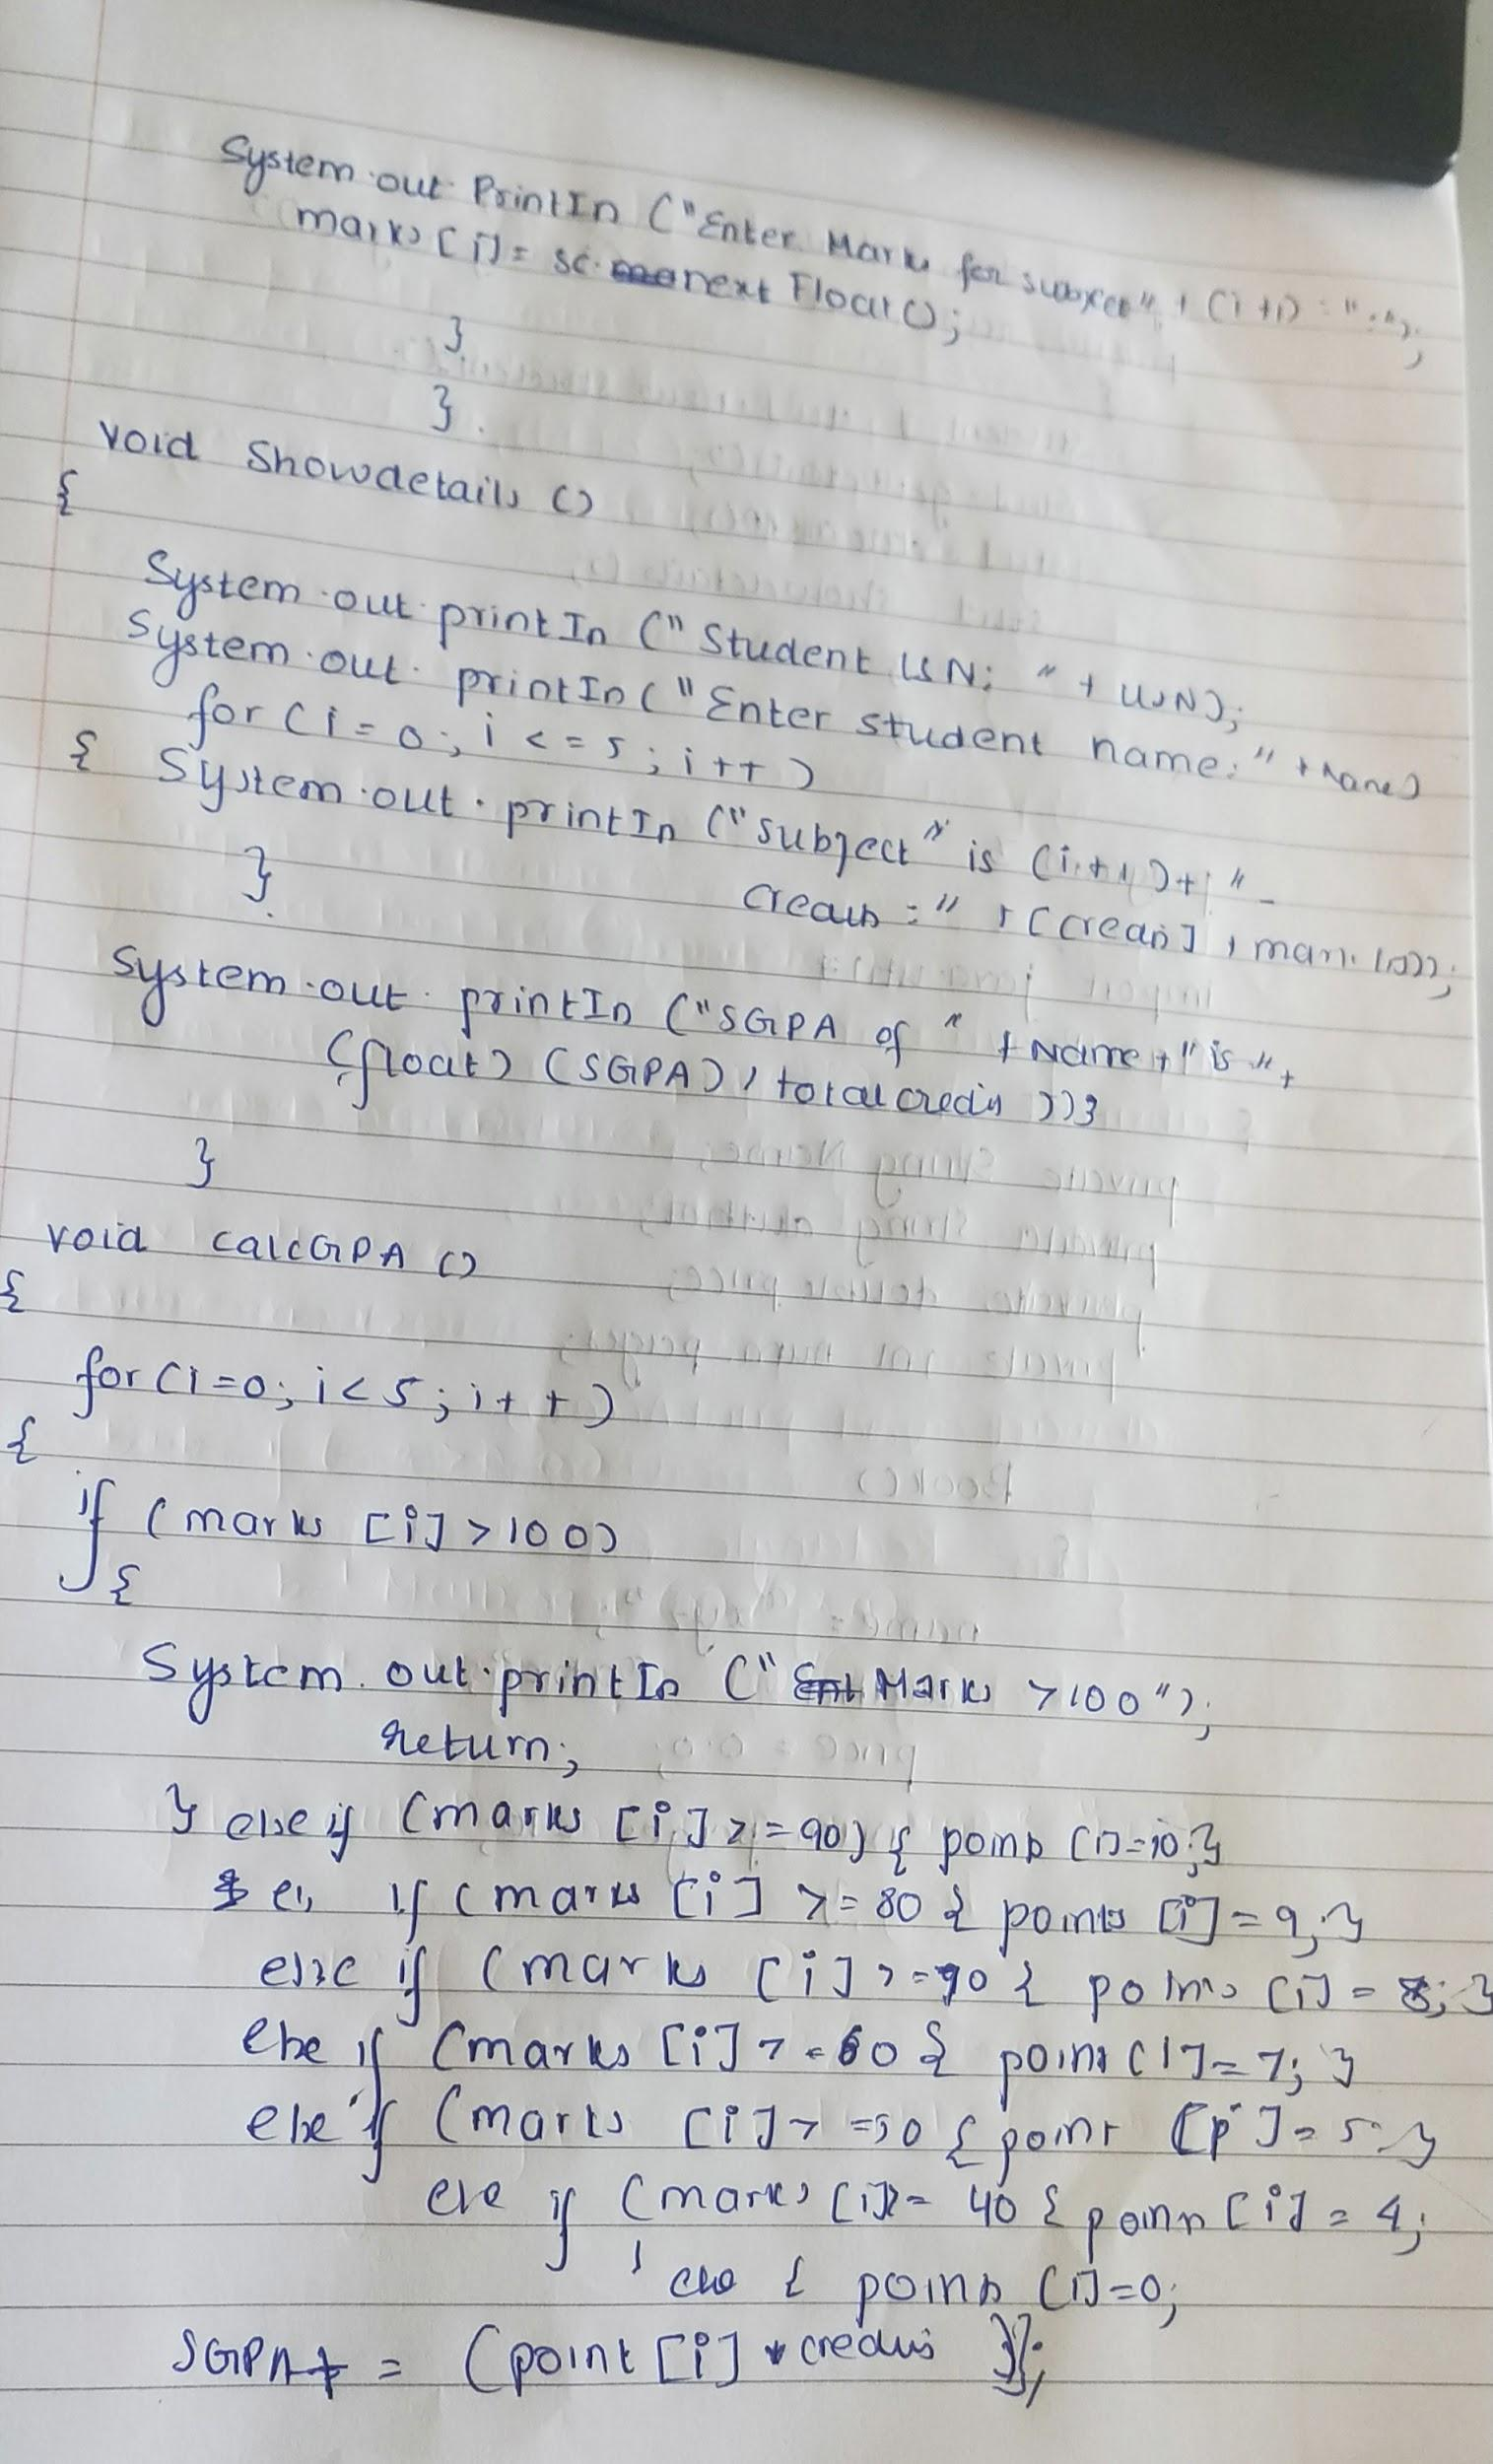 System.out.PrintIn ("Enter Marks for subject" + (i+1) : ":");
marks [i] = sc.next Float();
}
}
void Showdetails ()
{
System.out.printIn ("Student USN: " + USN);
System.out.printIn ("Enter student name:" + Name)
for (i = 0; i <= 5; i++)
{ System.out.printIn ("Subject" is (i+1)+ " -
credits :" + [credits] , marks
}
System.out.printIn ("SGPA of " + Name + " is " +
(float) (SGPA) / totalcredits ));
}
void calcGPA ()
{
for (i=0; i<5; i++)
{
if (marks [i] >100)
{
System.out.printIn (" Marks >100");
return;
} else if (marks [i] >=90) { points [i]=10;}
els if (marks [i] >=80 { points [i]=9;}
else if (marks [i] >=90 { points [i] = 8; }
else if (marks [i] >=60 { point [i]=7; }
else if (marks [i] >=50 { point [i]=5;}
else if (marks [i]>= 40 { points [i] = 4;
else { points [i]=0;
SGPA+ = (point [i] * credits )};